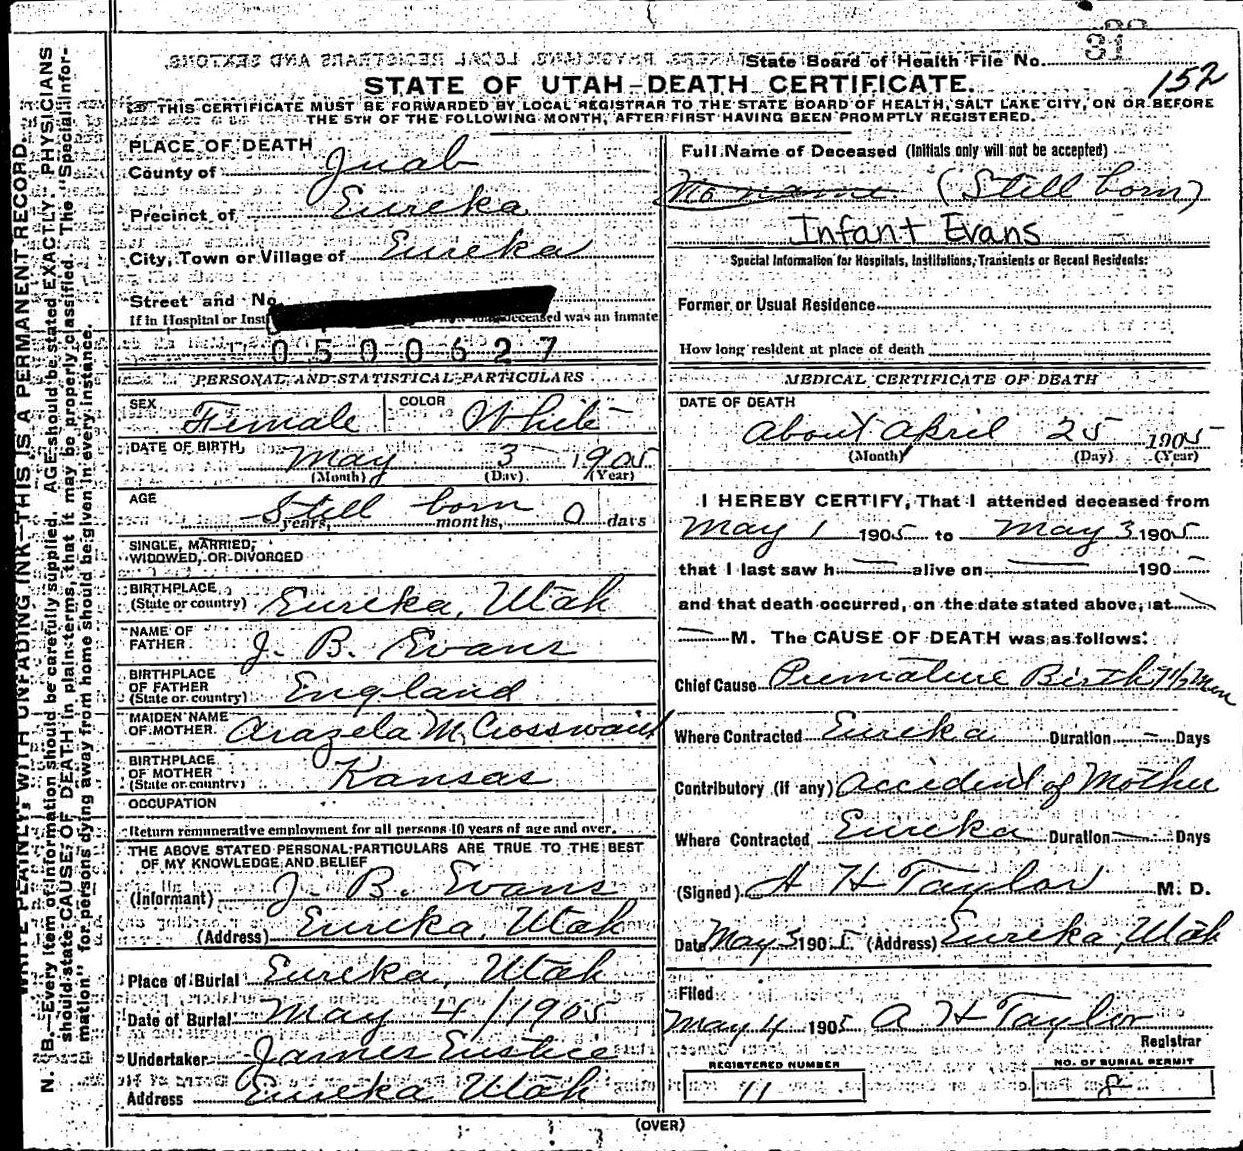 State Board of Health File No.
152
STATE OF UTAH—DEATH CERTIFICATE.
THIS CERTIFICATE MUST BE FORWARDED BY LOCAL REGISTRAR TO THE STATE BOARD OF HEALTH, SALT LAKE CITY, ON OR BEFORE
THE 5TH OF THE FOLLOWING MONTH, AFTER FIRST HAVING BEEN PROMPTLY REGISTERED.
PLACE OF DEATH
County of Juab
Precinct of Eureka
City, Town or Village of Eureka
Street and No.
If in Hospital or deceased was an inmate
0500627
PERSONAL AND STATISTICAL PARTICULARS
SEX Female COLOR White
DATE OF BIRTH May 3 1905
(Month) (Day) (Year)
AGE Still born 0
years, months, days
SINGLE, MARRIED,
WIDOWED, OR DIVORCED
BIRTHPLACE
(State or country) Eureka, Utah
NAME OF
FATHER J. B. Evans
BIRTHPLACE
OF FATHER
(State or country) England
MAIDEN NAME
OF MOTHER Arazela M Crosswait
BIRTHPLACE
OF MOTHER
(State or country) Kansas
OCCUPATION
Return remunerative employment for all persons 10 years of age and over.
THE ABOVE STATED PERSONAL PARTICULARS ARE TRUE TO THE BEST
OF MY KNOWLEDGE AND BELIEF
(Informant) J. B. Evans
(Address) Eureka, Utah
Place of Burial Eureka, Utah
Date of Burial May 4/1905
Undertaker James Eustice
Address Eureka Utah
Full Name of Deceased (Initials only will not be accepted)
No name (Still born)
Infant Evans
Special Information for Hospitals, Institutions, Transients or Recent Residents:
Former or Usual Residence
How long resident at place of death
MEDICAL CERTIFICATE OF DEATH
DATE OF DEATH
About April 25 1905
(Month) (Day) (Year)
I HEREBY CERTIFY, That I attended deceased from
May 1 1905 to May 3 1905
that I last saw h alive on 190
and that death occurred, on the date stated above, at
M. The CAUSE OF DEATH was as follows:
Chief Cause Premature Birth 7 1/2 Mon
Where Contracted Eureka Duration - Days
Contributory (if any) Accident of Mother
Where Contracted Eureka Duration Days
(Signed) A H Taylor M. D.
Date May 3 1905 (Address) Eureka, Utah
Filed
May 4 1905 A H Taylor
Registrar
REGISTERED NUMBER
11
NO. OF BURIAL PERMIT
8
(OVER)
WRITE PLAINLY, WITH UNFADING INK—THIS IS A PERMANENT RECORD.
N. B.—Every item of information should be carefully supplied. AGE should be stated EXACTLY. PHYSICIANS
should state CAUSE OF DEATH in plain terms, that it may be properly classified. The "Special Infor-
mation" for persons dying away from home should be given in every instance.